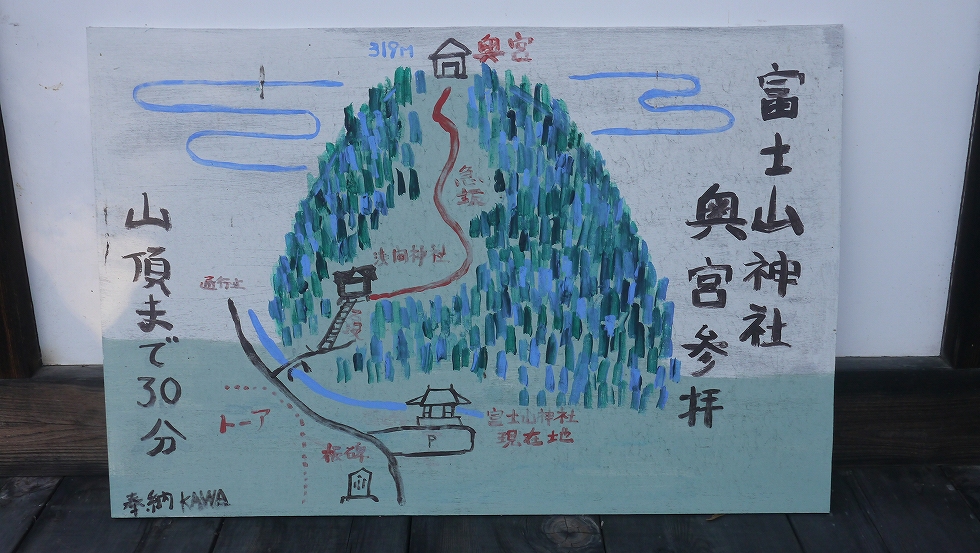 富士山神社
奥宮参拝
319M
奥宮
急坂
浅間神社
通行止
トーア
板碑
P
富士山神社
現在地
山頂まで30分
奉納 KAWA